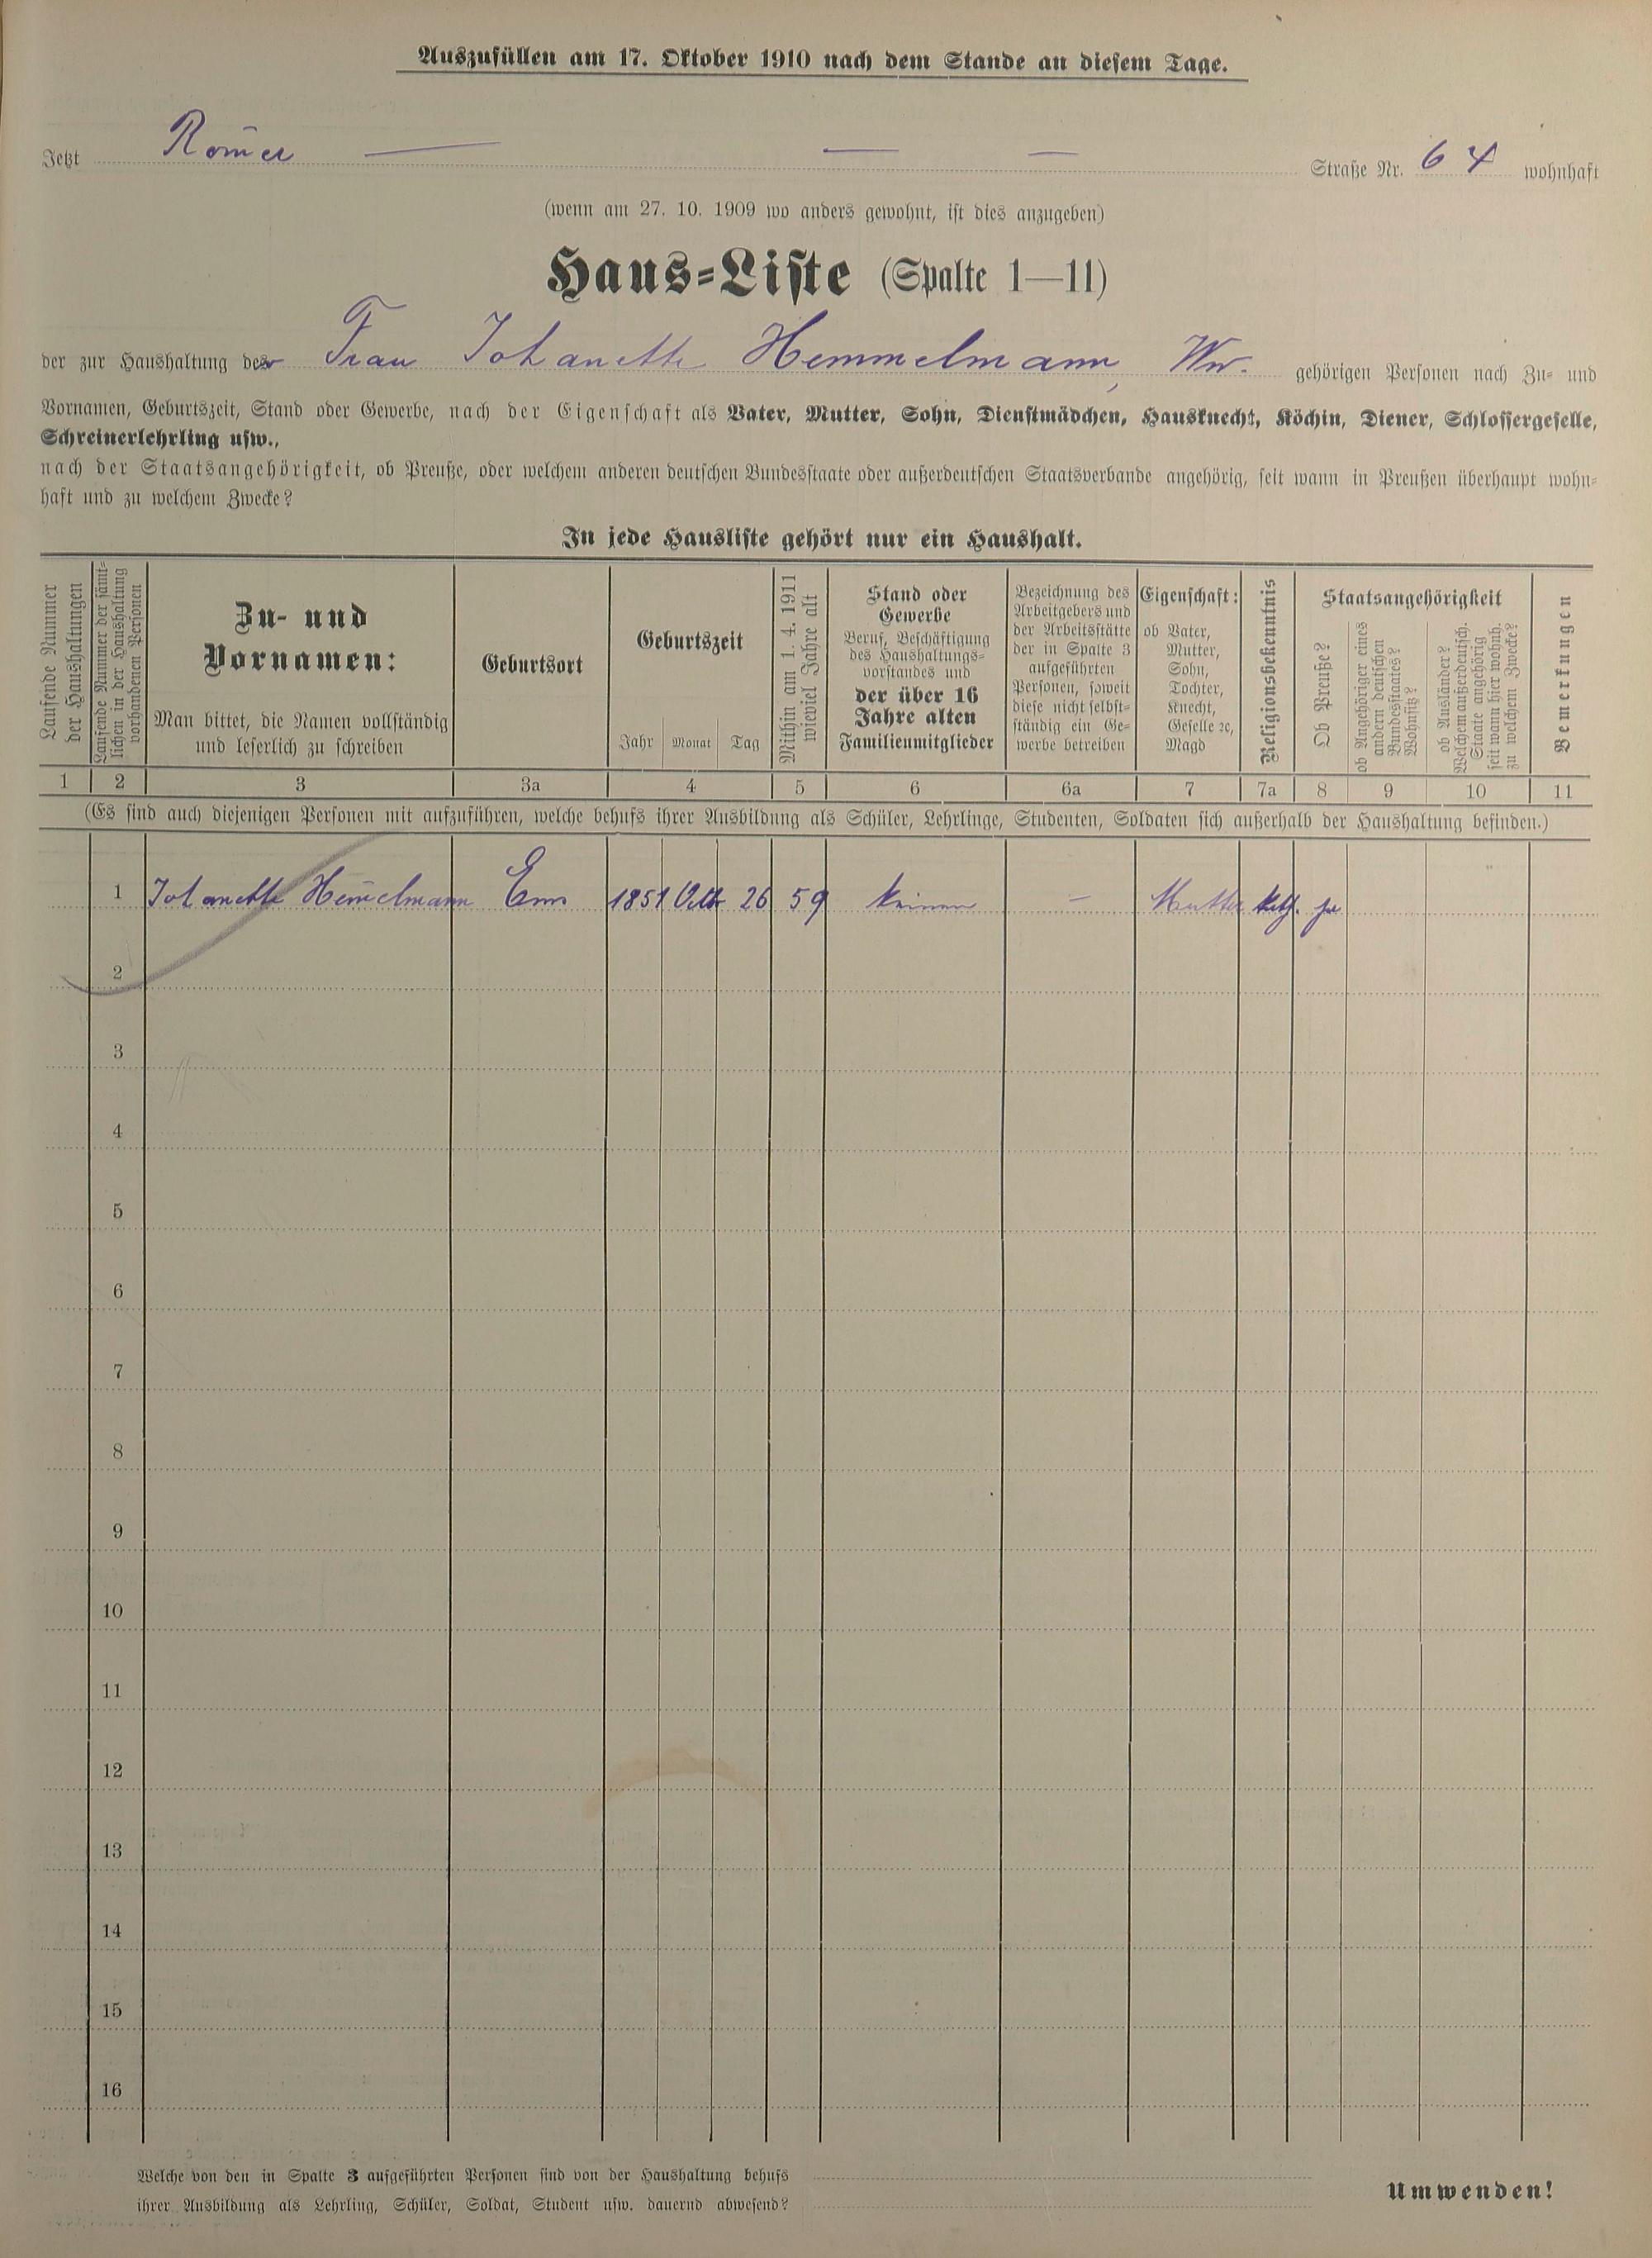 Auszufüllen am 17. Oktober 1910 nach dem Stande an diesem Tage.
Jetzt Römer — — — Straße Nr. 64 wohnhaft
(wenn am 27. 10. 1909 wo anders gewohnt, ist dies anzugeben)
Haus-Liste (Spalte 1—11)
der zur Haushaltung der Frau Johanette Hemmelmann, Ww. gehörigen Personen nach Zu- und
Vornamen, Geburtszeit, Stand oder Gewerbe, nach der Eigenschaft als Vater, Mutter, Sohn, Dienstmädchen, Hausknecht, Köchin, Diener, Schlossergeselle,
Schreinerlehrling usw.,
nach der Staatsangehörigkeit, ob Preuße, oder welchem anderen deutschen Bundesstaate oder außerdeutschen Staatsverbande angehörig, seit wann in Preußen überhaupt wohn-
haft und zu welchem Zwecke?
In jede Hausliste gehört nur ein Haushalt.
Laufende Nummer
der Haushaltungen
Laufende Nummer der sämt-
lichen in der Haushaltung
vorhandenen Personen
Zu- und
Vornamen:
Man bittet, die Namen vollständig
und leserlich zu schreiben
Geburtsort
Geburtszeit
Jahr Monat Tag
Mithin am 1. 4. 1911
wieviel Jahre alt
Stand oder
Gewerbe
Beruf, Beschäftigung
des Haushaltungs-
vorstandes und
der über 16
Jahre alten
Familienmitglieder
Bezeichnung des
Arbeitgebers und
der Arbeitsstätte
der in Spalte 3
aufgeführten
Personen, soweit
diese nicht selbst-
ständig ein Ge-
werbe betreiben
Eigenschaft:
ob Vater,
Mutter,
Sohn,
Tochter,
Knecht,
Geselle ec,
Magd
Religionsbekenntnis
Staatsangehörigkeit
Ob Preuße?
ob Angehöriger eines
andern deutschen
Bundesstaates?
Wohnsitz?
ob Ausländer?
Welchem außerdeutsch.
Staate angehörig
seit wann hier wohnh.
zu welchem Zwecke?
Bemerkungen
1 2 3 3a 4 5 6 6a 7 7a 8 9 10 11
(Es sind auch diejenigen Personen mit aufzuführen, welche behufs ihrer Ausbildung als Schüler, Lehrlinge, Studenten, Soldaten sich außerhalb der Haushaltung befinden.)
1 Johanette Hem̄elmann Ems 1851 Oktb 26 59 keinen — Mutter kath. ja
2
3
4
5
6
7
8
9
10
11
12
13
14
15
16
Welche von den in Spalte 3 aufgeführten Personen sind von der Haushaltung behufs
ihrer Ausbildung als Lehrling, Schüler, Soldat, Student usw. dauernd abwesend?
Umwenden!